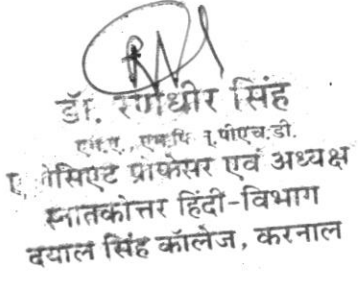 डॉ. रणधीर सिंह
एम.ए., एम.फि पीएच.डी.
एसोसिएट प्रोफेसर एवं अध्यक्ष
स्नातकोत्तर हिंदी-विभाग
दयाल सिंह कॉलेज, करनाल